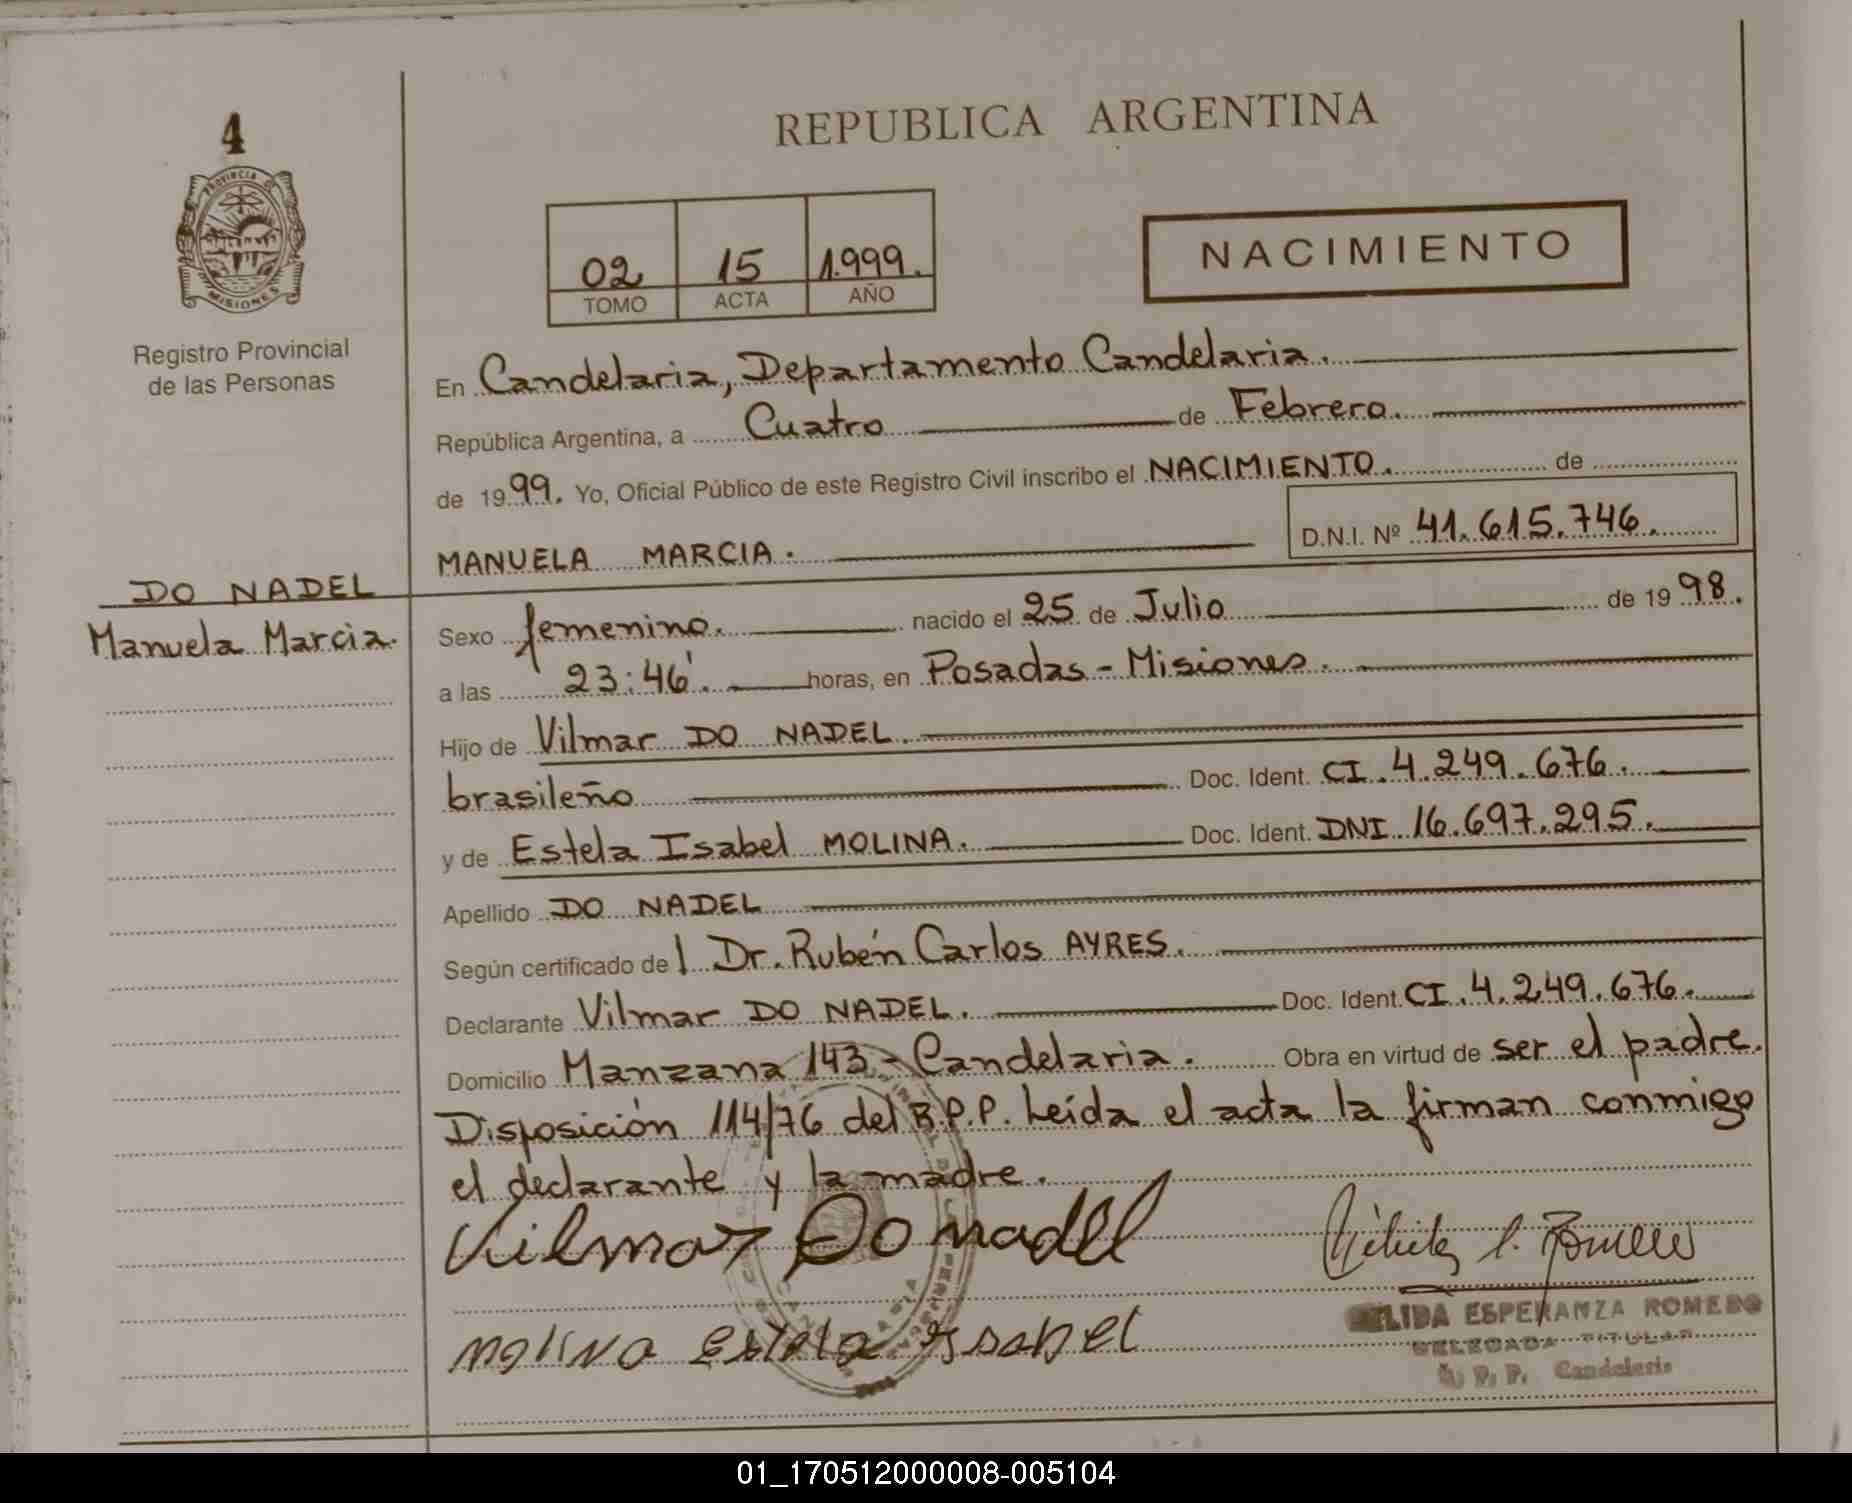 4
PROVINCIA DE
MISIONES
Registro Provincial
de las Personas
DO NADEL
Manuela Marcia.
REPUBLICA ARGENTINA
02 15 1.999.
TOMO ACTA AÑO
NACIMIENTO
En Candelaria, Departamento Candelaria.
República Argentina, a Cuatro de Febrero.
de 1999. Yo, Oficial Público de este Registro Civil inscribo el NACIMIENTO. de
MANUELA MARCIA. D.N.I. Nº 41.615.746.
Sexo femenino. nacido el 25 de Julio de 1998.
a las 23:46'. horas, en Posadas - Misiones.
Hijo de Vilmar DO NADEL.
brasileño Doc. Ident. CI. 4.249.676.
y de Estela Isabel MOLINA. Doc. Ident. DNI 16.697.295.
Apellido DO NADEL
Según certificado del Dr. Rubén Carlos AYRES.
Declarante Vilmar DO NADEL. Doc. Ident. CI. 4.249.676.
Domicilio Manzana 143 - Candelaria. Obra en virtud de ser el padre.
Disposición 114/76 del B.P.P. Leída el acta la firman conmigo
el declarante y la madre.
Vilmar Do nadel
Molina Estela Isabel
ESPERANZA ROMERO
DELEGADA TITULAR
Candelaria
01_170512000008-005104